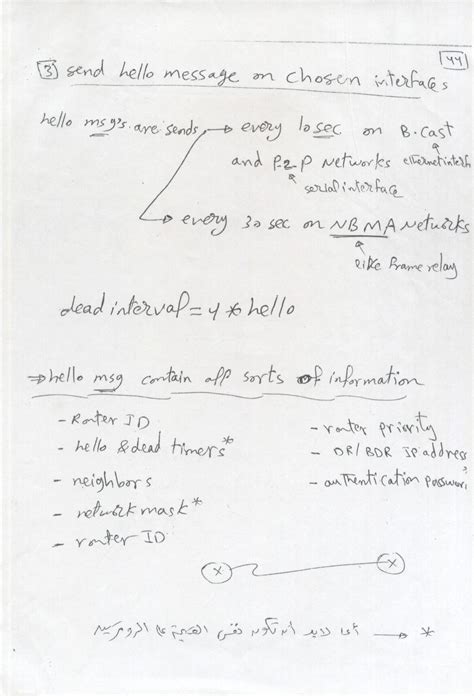 44
3 send hello message on chosen interfaces
hello msg's are sends → every 10 sec on B.Cast
ethernet interf
and P2P Networks
serial interface
→ every 30 sec on NBMA Networks
like Frame relay
dead interval = 4 * hello
⇒ hello msg contain all sorts of information
- Router ID
- hello & dead timers*
- neighbors
- network mask*
- router ID
- router priority
- DR/BDR IP address
- authentication password
* → أى لابد أن تكون نفس القيمة على الروترين